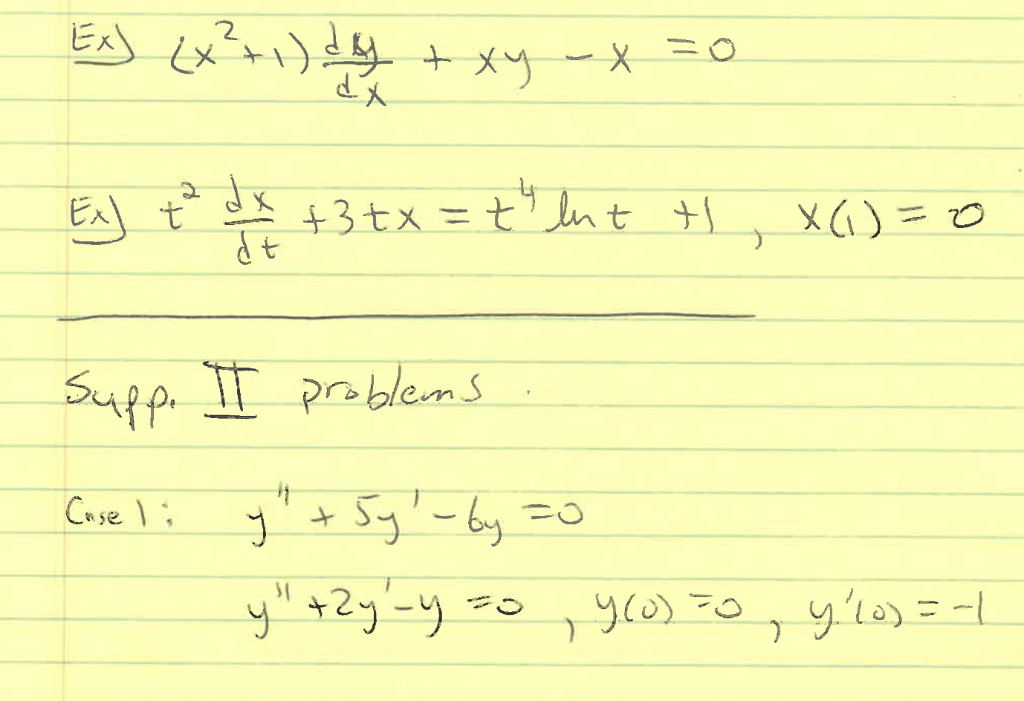 Ex) (x²+1) dy/dx + xy - x = 0
Ex) t² dx/dt + 3tx = t⁴ ln t + 1, x(1) = 0
Supp. II problems.
Case 1: y'' + 5y' - 6y = 0
y'' + 2y' - y = 0, y(0) = 0, y'(0) = -1